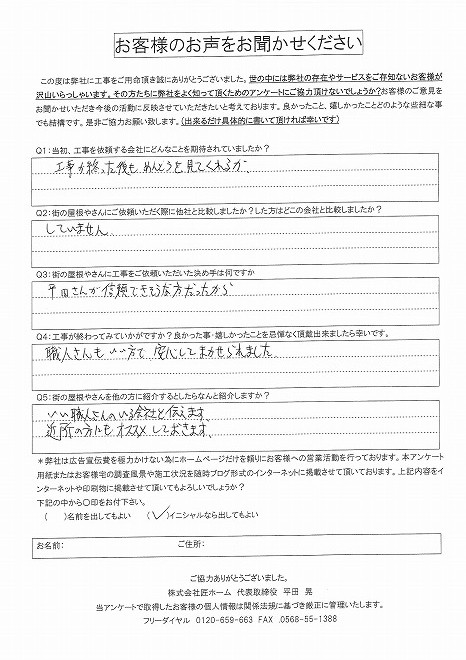 お客様のお声をお聞かせください
この度は弊社に工事をご用命頂き誠にありがとうございました。世の中には弊社の存在やサービスをご存知ないお客様が
沢山いらっしゃいます。その方たちに弊社をよく知って頂くためのアンケートにご協力頂けないでしょうか?お客様のご意見を
お聞かせいただき今後の活動に反映させていただきたいと考えております。良かったこと、嬉しかったことどのような些細な事
でも結構です。是非ご協力お願い致します。(出来るだけ具体的に書いて頂ければ幸いです)
Q1:当初、工事を依頼する会社にどんなことを期待されていましたか?
工事が終った後も めんどうを見てくれるか、
Q2:街の屋根やさんにご依頼いただく際に他社と比較しましたか?した方はどこの会社と比較しましたか?
していません
Q3:街の屋根やさんに工事をご依頼いただいた決め手は何ですか
平田さんが信頼できそうな方だったから
Q4:工事が終わってみていかがですか?良かった事・嬉しかったことを忌憚なく頂戴出来ましたら幸いです。
職人さんも いい方で 安心して まかせられました
Q5:街の屋根やさんを他の方に紹介するとしたらなんと紹介しますか?
いい職人さんのいる会社と伝えます、
近所の方にも オススメ しておきます、
*弊社は広告宣伝費を極力かけない為にホームページだけを頼りにお客様への営業活動を行っております。本アンケート
用紙またはお客様宅の調査風景や施工状況を随時ブログ形式のインターネットに掲載させて頂いております。上記内容をイ
ンターネットや印刷物に掲載させて頂いてもよろしいでしょうか?
下記の中から〇印をお付下さい。
( )名前を出してもよい (✓)イニシャルなら出してもよい
お名前: ご住所:
ご協力ありがとうございました。
株式会社匠ホーム 代表取締役 平田 晃
当アンケートで取得したお客様の個人情報は関係法規に基づき厳正に管理いたします。
フリーダイヤル 0120-659-663 FAX .0568-55-1388